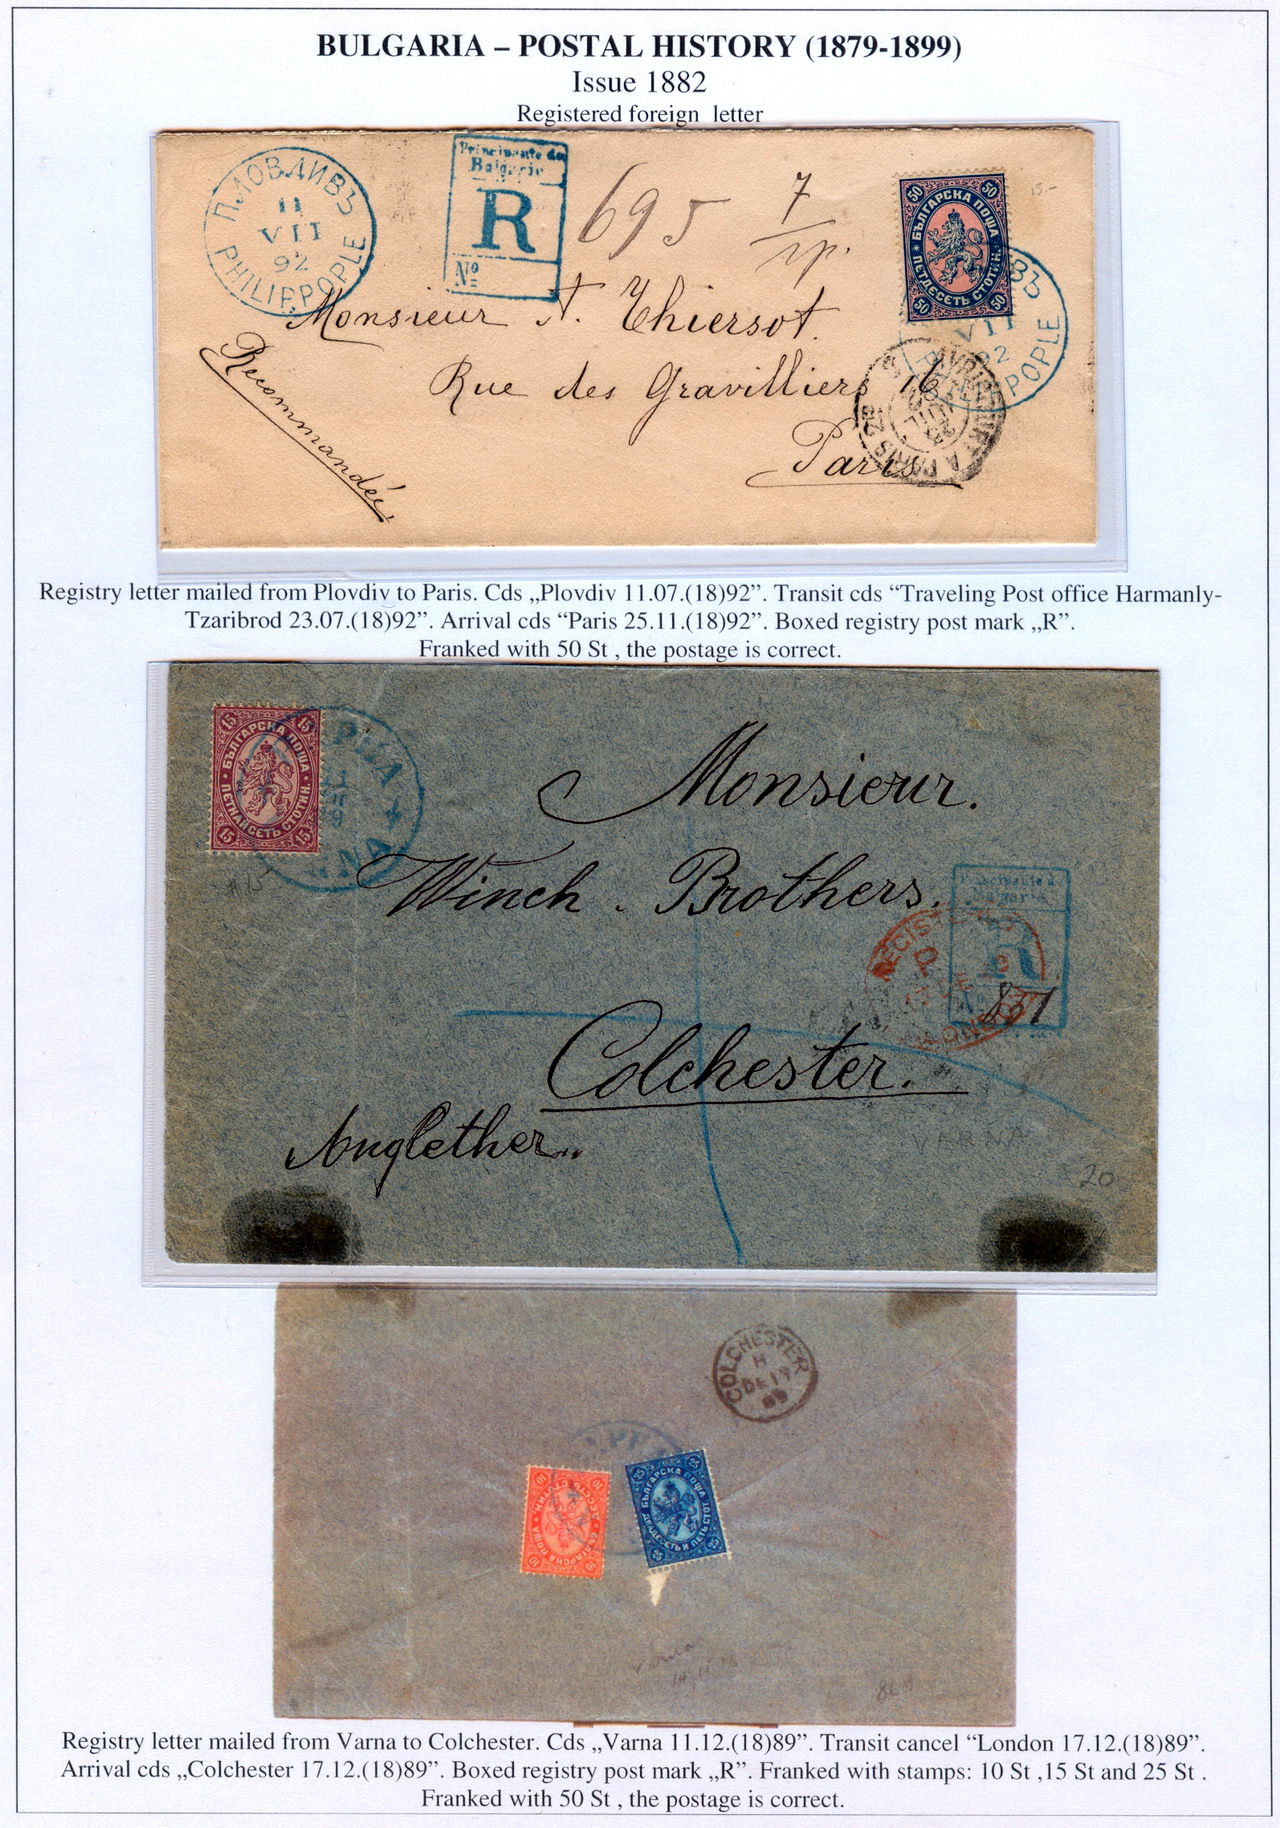 BULGARIA – POSTAL HISTORY (1879-1899)
Issue 1882
Registered foreign letter
ПЛОВДИВЪ
11
VII
92
PHILIPPOPLE
Principaute de
Bulgarie
R
Nº
695
7
50 50
БЪЛГАРСКА ПОЩА
ПЕТДЕСЕТЬ СТОТИН.
50 50
ВЪ
VII
92
POPLE
Monsieur A. Thiersot.
Rue des Gravilliers 16
Paris
Recommandée
A PARIS
25
Registry letter mailed from Plovdiv to Paris. Cds „Plovdiv 11.07.(18)92”. Transit cds “Traveling Post office Harmanly-
Tzaribrod 23.07.(18)92”. Arrival cds “Paris 25.11.(18)92”. Boxed registry post mark „R”.
Franked with 50 St , the postage is correct.
15 15
БЪЛГАРСКА ПОЩА
ПЕТНАЙСЕТЬ СТОТИН.
15 15
#15
Monsieur.
Winch. Brothers.
Principaute de
Bulgarie
R
857
Colchester.
Anglether..
NA
20
COLCHESTER
H
DE 19
89
10 10
БЪЛГАРСКА ПОЩА
ДЕСЕТЬ СТОТИН.
10 10
25 25
БЪЛГАРСКА ПОЩА
ДВАДЕСЕТЬ И ПЕТЬ СТОТ
25 25
Varna
Registry letter mailed from Varna to Colchester. Cds „Varna 11.12.(18)89”. Transit cancel “London 17.12.(18)89”.
Arrival cds „Colchester 17.12.(18)89”. Boxed registry post mark „R”. Franked with stamps: 10 St ,15 St and 25 St .
Franked with 50 St , the postage is correct.